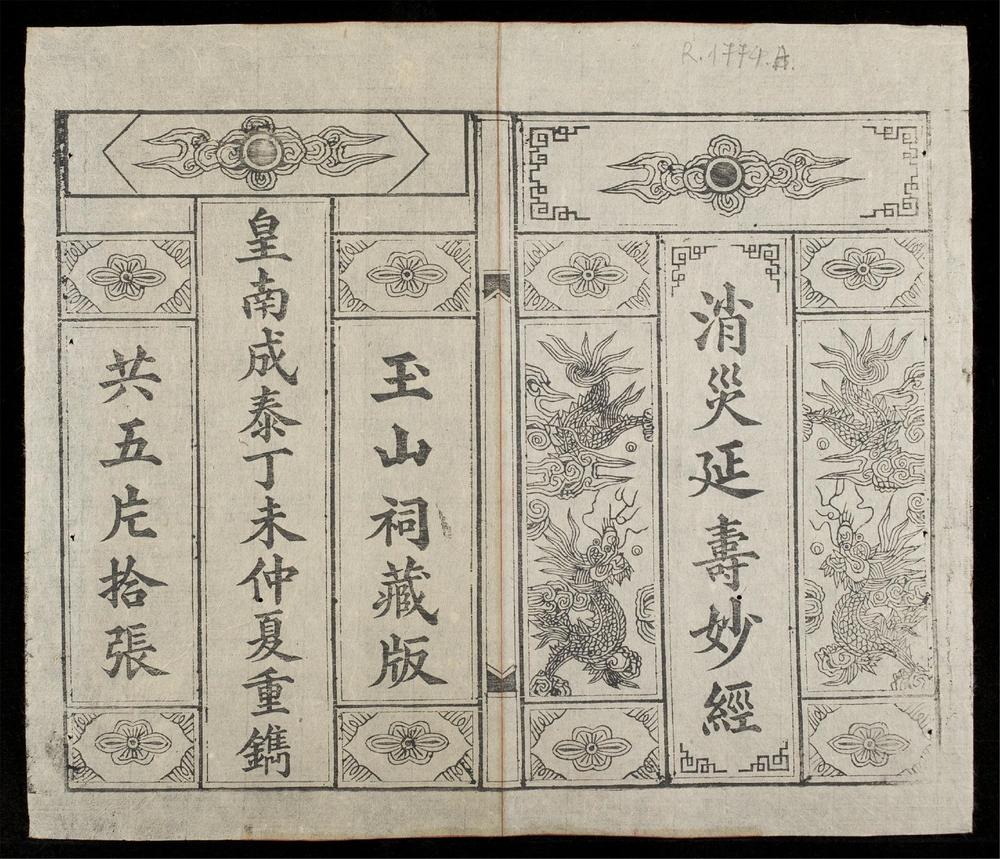 R.1774.A.
消災延壽妙經
玉山祠藏版
皇南成泰丁未仲夏重鐫
共五片拾張